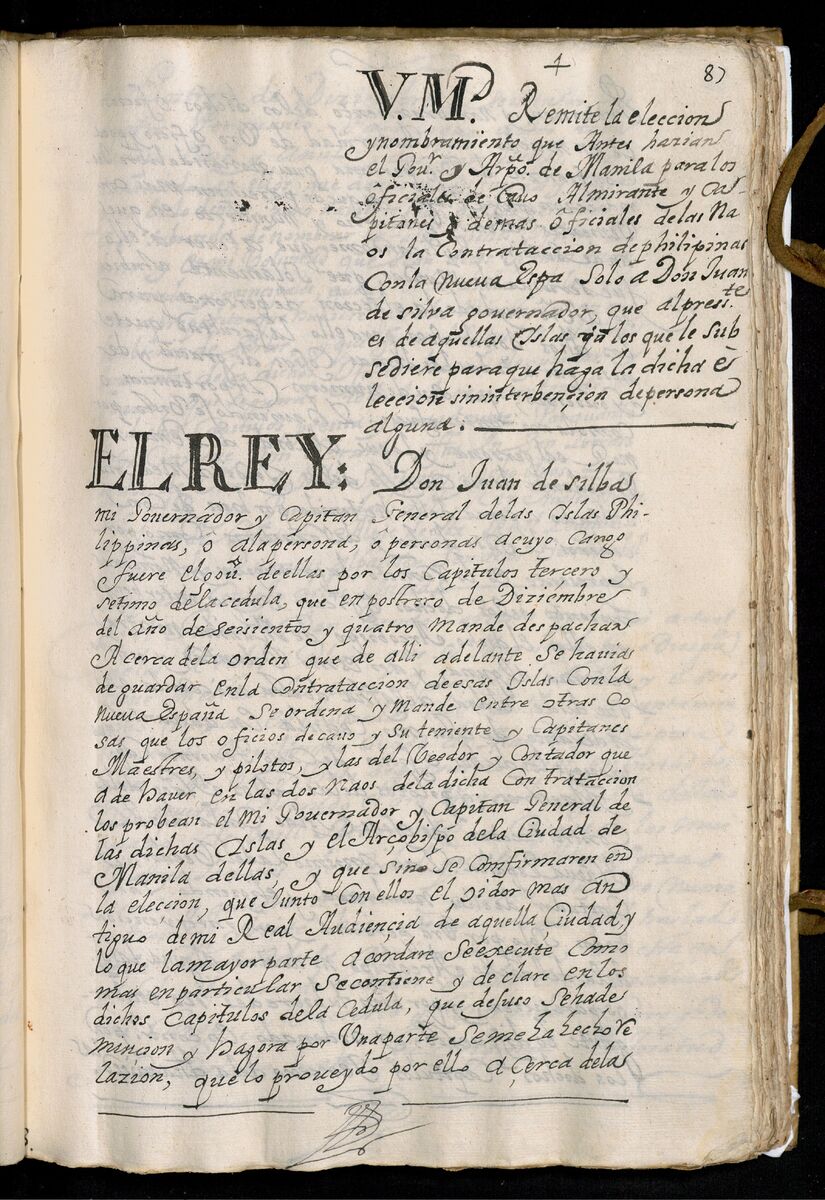 4
87
V.M. Remite la eleccion
y nombramiento que Antes hazian
el Gour. y Arpo. de Manila para los
ôficiales de Cauo Almirante y Ca-
pitanes y demas ôficiales de las Na
os la Contrataccion de philipinas
Con la nueua Espa Solo a Don Juan
de silva gouernador, que al press.te
es de aquellas Islas y a los que le sub
sediere para que haga la dicha ê
leccion sin interbencion de persona
alguna:
EL REY: Don Juan de silba
mi Gouernador y Capitan General de las Islas Phi-
lippinas, ô a la persona, ô personas a cuyo cargo
fuere el gou.o de ellas por los Capitulos tercero y
setimo de la cedula, que en postrero de Diziembre
del año de seisientos y quatro mande despachar
Acerca de la orden que de alli adelante se hauia
de guardar en la Contrataccion de esas Islas Con la
Nueua España se ordena y Mande entre otras co
sas que los oficios de cauo y su teniente y Capitanes
Maestres, y pilotos, y las del Veedor y Contador que
a de haver en las dos Naos de la dicha Contrataccion
los probean el mi Gouernador y Capitan General de
las dichas Islas y el Arcobispo de la Ciudad de
Manila dellas, y que sino se Comfirmaren en
la elecion, que Junto Con ellos el oidor mas an
tiguo de mi Real Audiençia de aquella Ciudad, y
lo que la mayor parte acordare se execute Como
mas en particular se contiene y de clare en los
dichos Capitulos de la Cedula, que desuso se hade
minçion y hagora por Una parte se me ha hecho re
lazion, que lo proveydo por ello a çerca de las